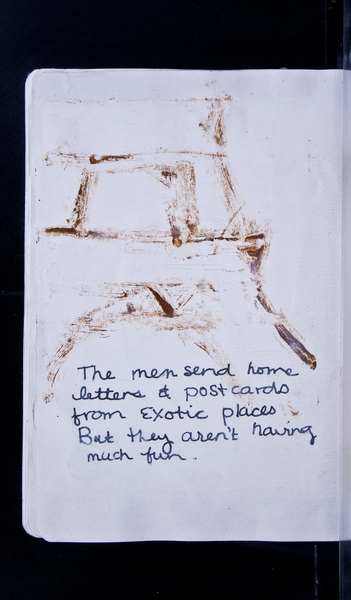 The men send home
letters & postcards
from Exotic places
But they aren't having
much fun.